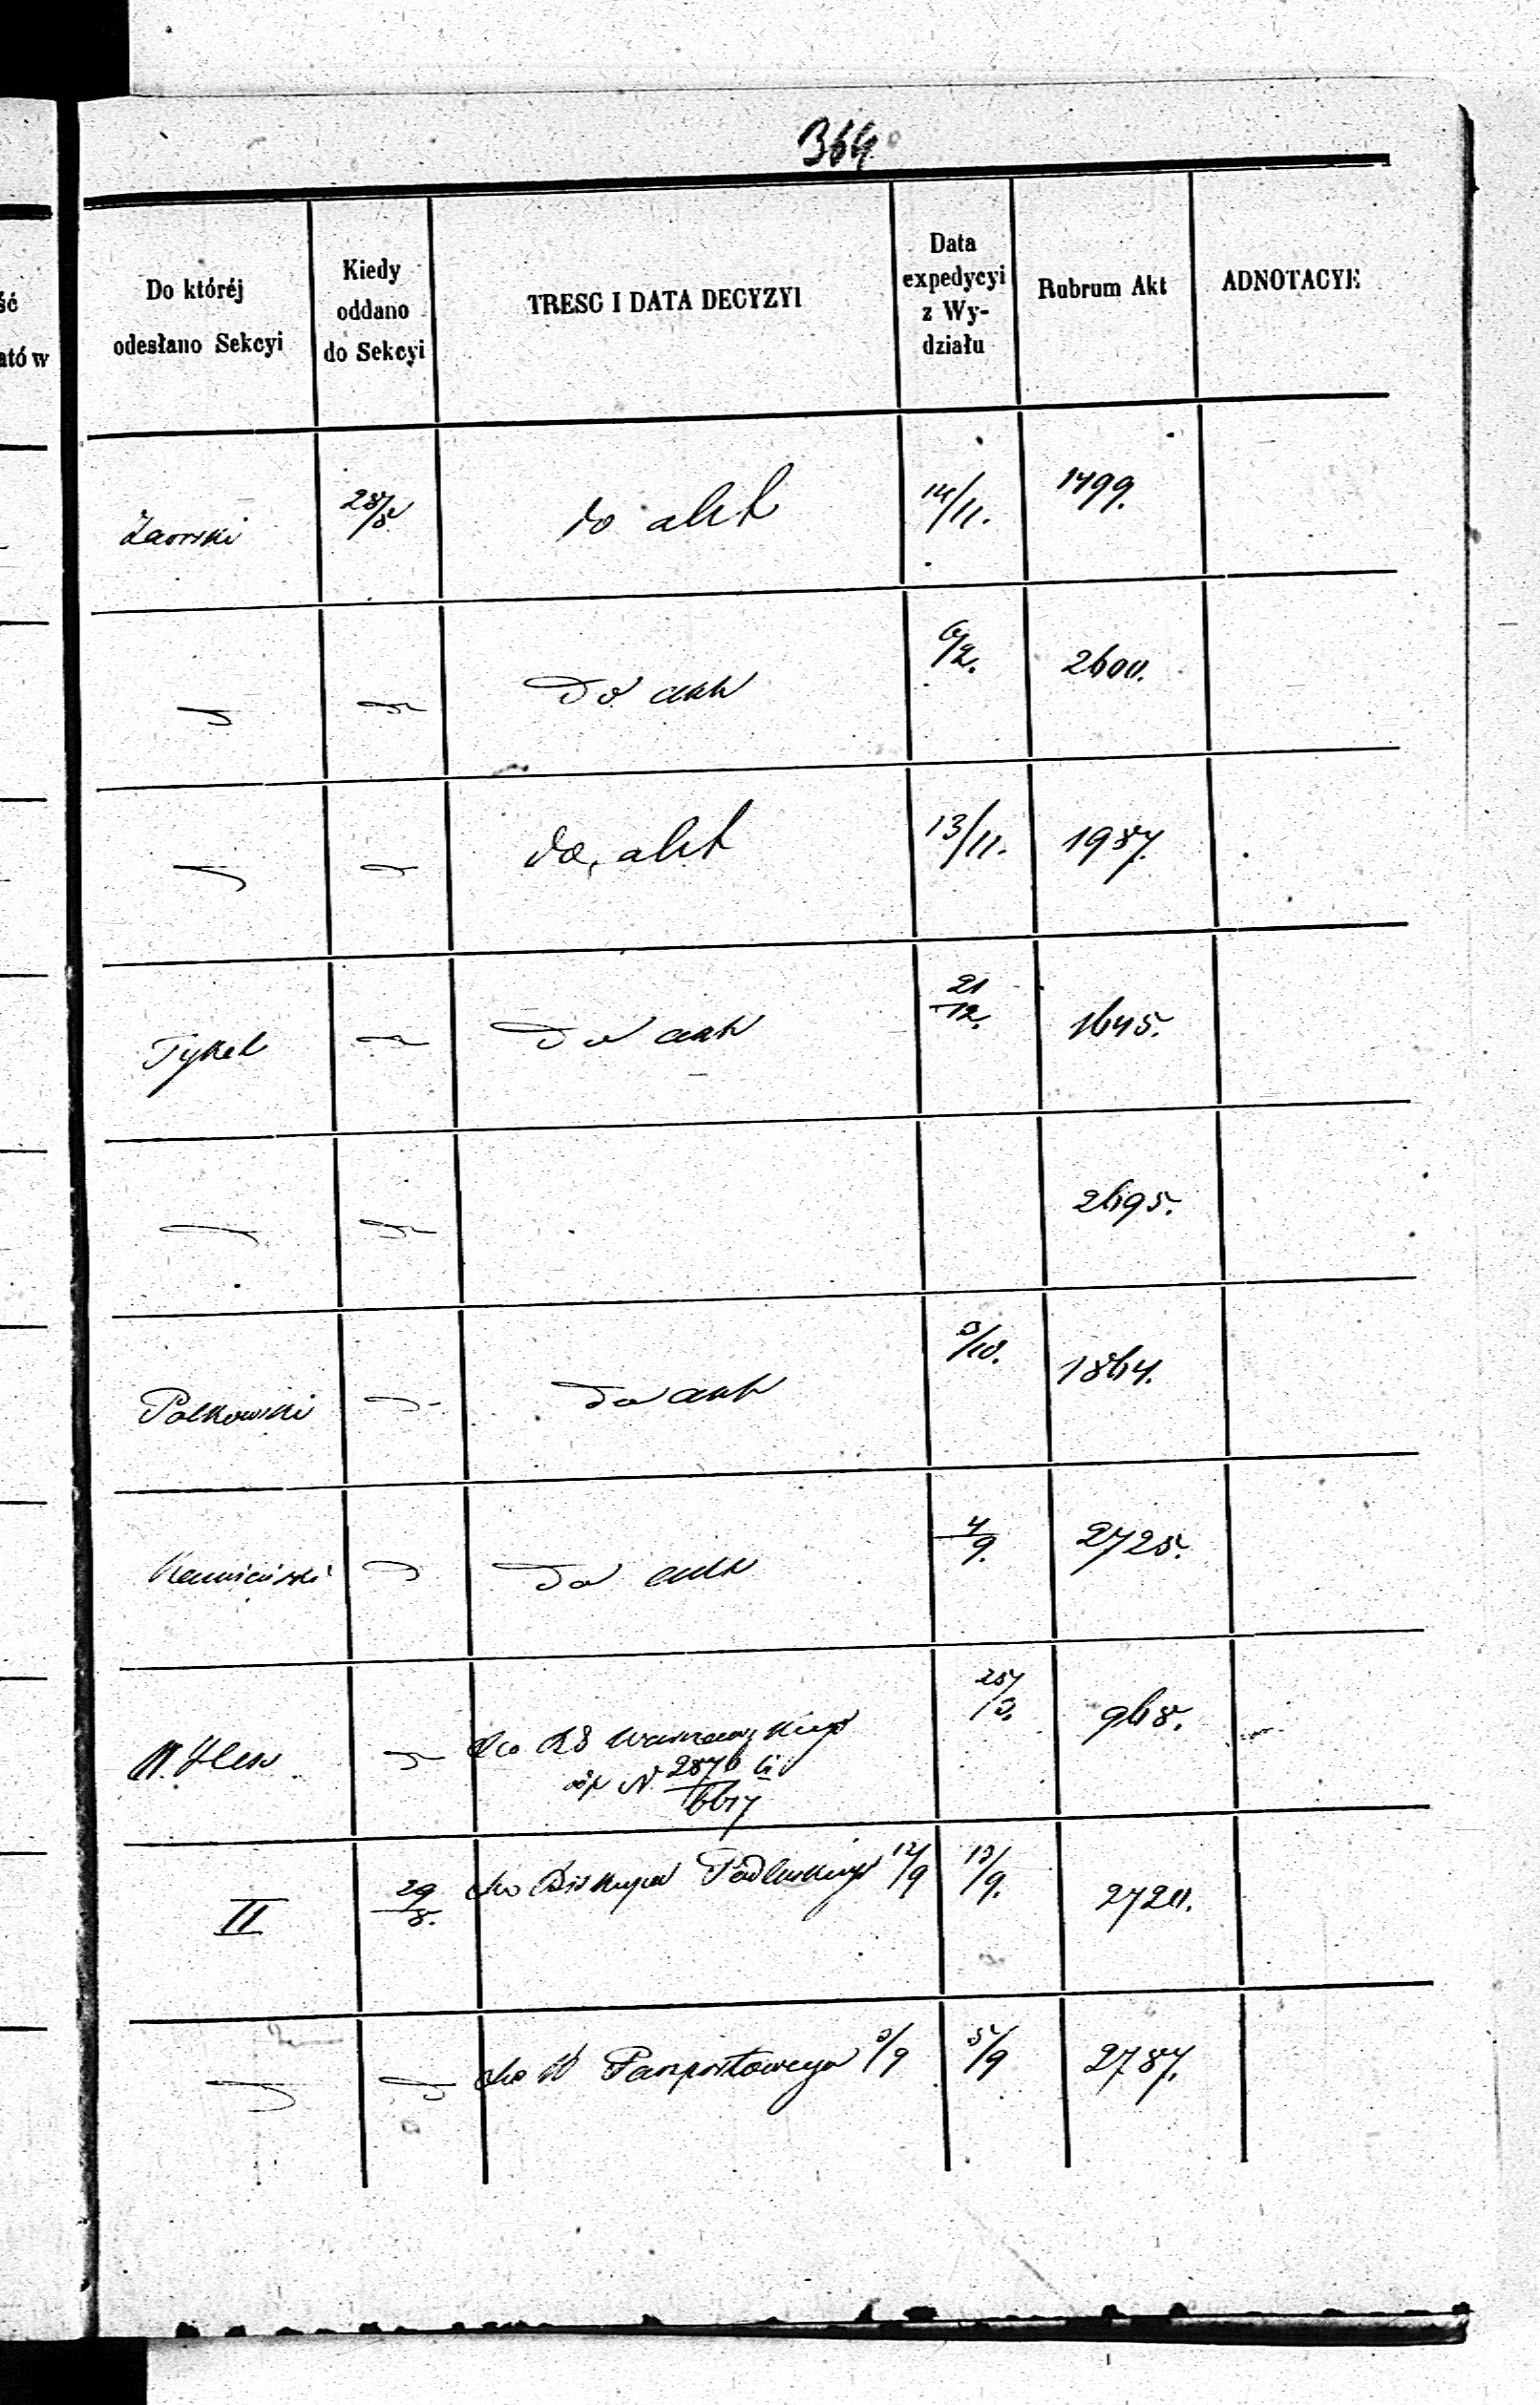 364
Do któréj odesłano Sekcyi
Kiedy oddano do Sekcyi
TRESC I DATA DECYZYI
Data expedycyi z Wydziału
Rubrum Akt
ADNOTACYE
Zaorski 28/8 do akt 14/11. 1499.
do akt 6/2. 2600.
do akt 13/11. 1987.
Tykel do akt 21/12. 1645.
2695.
Polkowski do akt 3/10. 1864.
Kamieński do akt 4/9. 2725.
do Warszawskiego N 968.
II 29/8. do Biskupa Podlaskiego 12/9 13/9. 2720.
do W Paszportowego 3/9 5/9 2787.
ść
atów